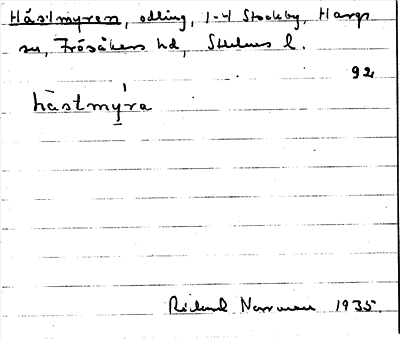 Hästmyren, odling, 1-4 Stockby, Hargs
sn, Frösåkers hd, Sthlms l.
92
hästmýra
Rickard Norrman 1935.